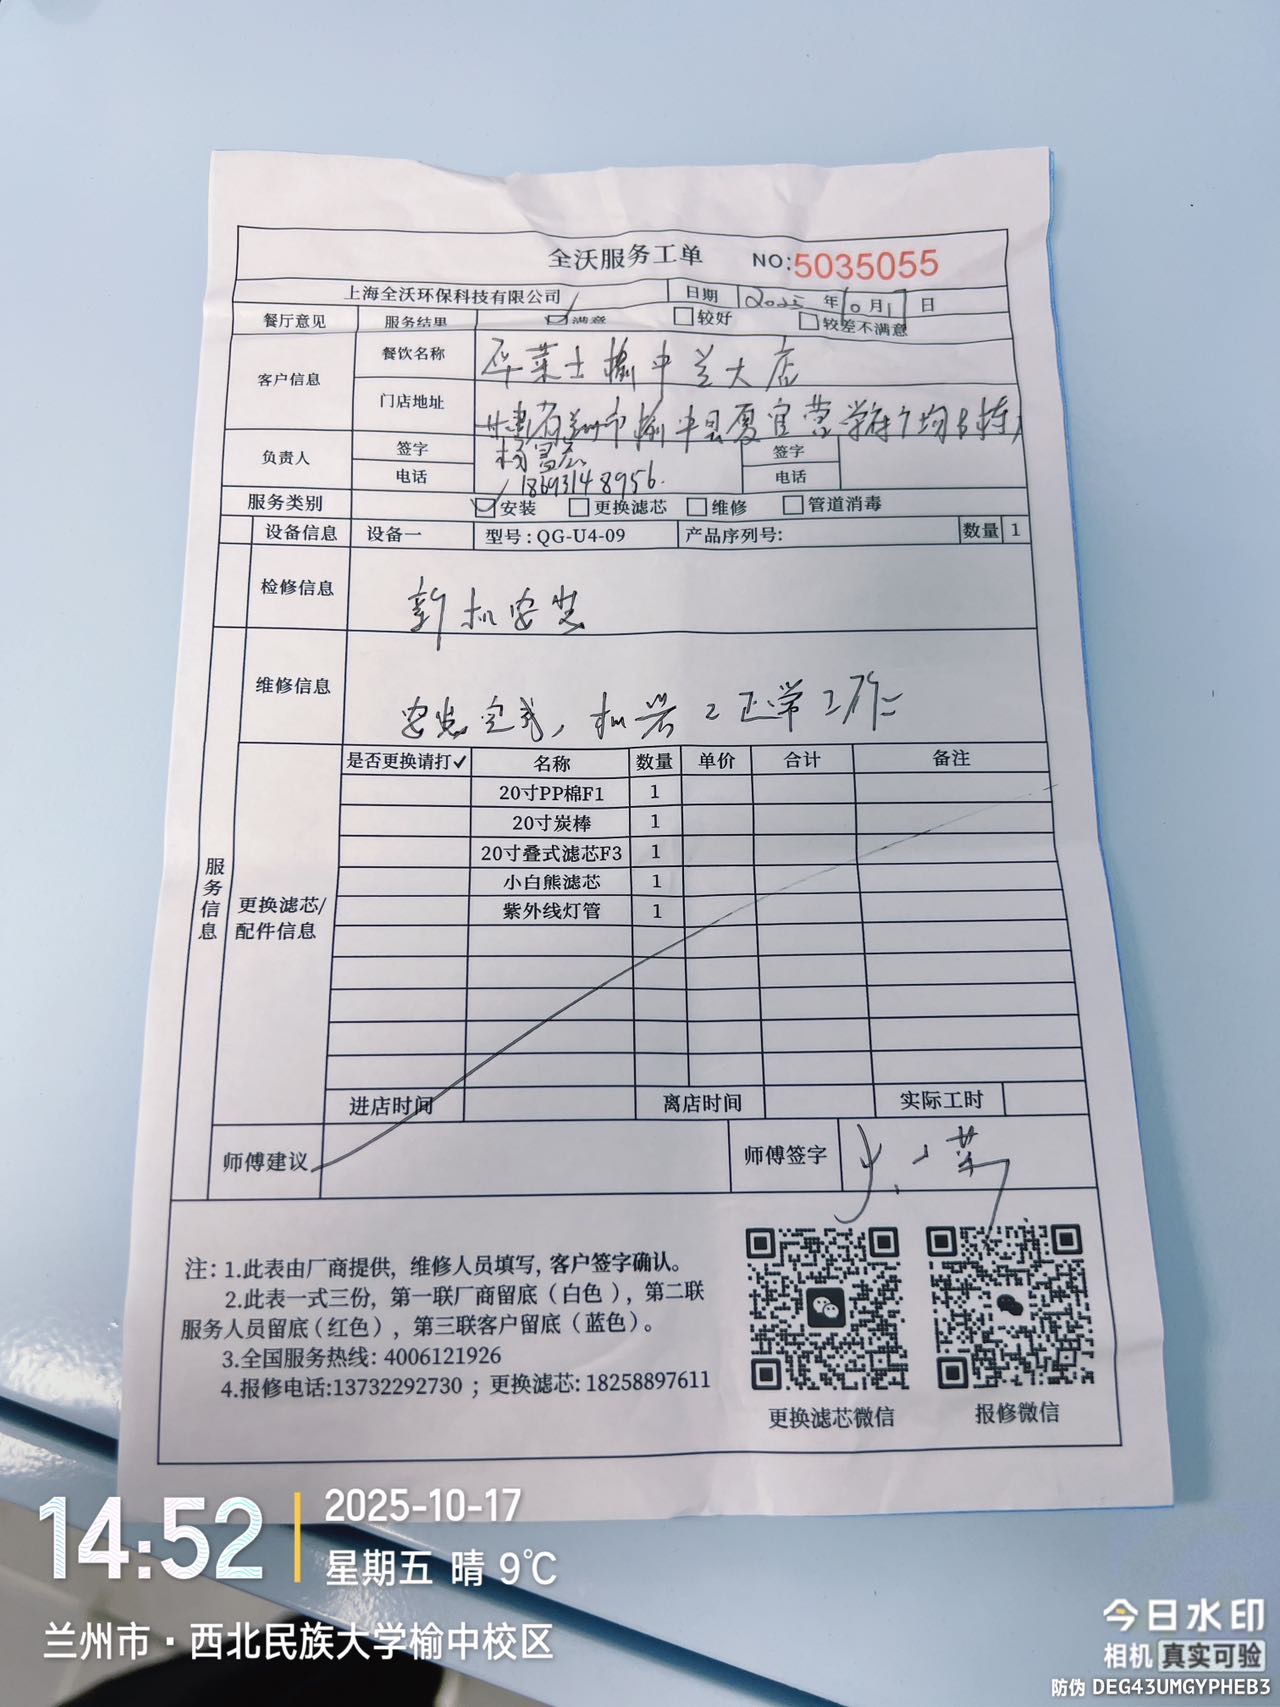 全沃服务工单 NO:5035055
上海全沃环保科技有限公司 日期 2025 年 10 月 17 日
餐厅意见 服务结果 ☑满意 □较好 □较差不满意
客户信息 餐饮名称 华莱士榆中兰大店
门店地址 甘肃省兰州市榆中县夏官营学府广场
负责人 签字 杨 签字
电话 18693148956. 电话
服务类别 ☑安装 □更换滤芯 □维修 □管道消毒
设备信息 设备一 型号:QG-U4-09 产品序列号: 数量 1
检修信息 新机安装
维修信息 安装完成,机器已正常工作
服务信息
更换滤芯/配件信息
是否更换请打✓ 名称 数量 单价 合计 备注
20寸PP棉F1 1
20寸炭棒 1
20寸叠式滤芯F3 1
小白熊滤芯 1
紫外线灯管 1
进店时间 离店时间 实际工时
师傅建议 师傅签字
注: 1.此表由厂商提供, 维修人员填写, 客户签字确认。
2.此表一式三份, 第一联厂商留底(白色), 第二联
服务人员留底(红色), 第三联客户留底(蓝色)。
3.全国服务热线: 4006121926
4.报修电话:13732292730 ; 更换滤芯: 18258897611
更换滤芯微信 报修微信
14:52 2025-10-17
星期五 晴 9℃
兰州市·西北民族大学榆中校区
今日水印
相机 真实可验
防伪 DEG43UMGYPHEB3